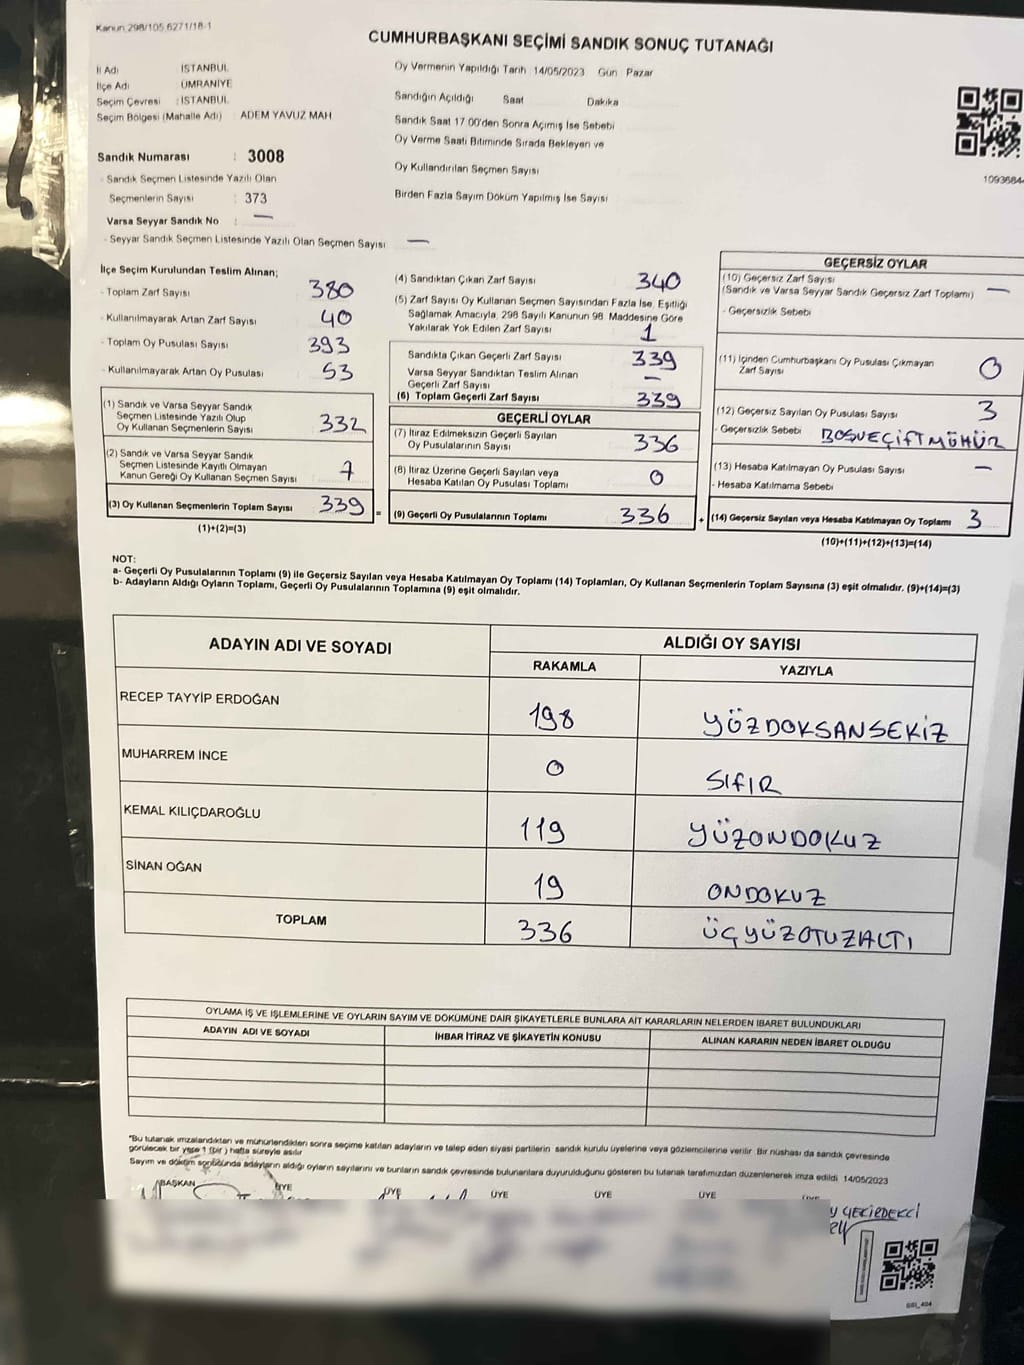 Kanun 298/105 6271/18-1
CUMHURBAŞKANI SEÇİMİ SANDIK SONUÇ TUTANAĞI
İl Adı İSTANBUL
İlçe Adı ÜMRANİYE
Seçim Çevresi : İSTANBUL
Seçim Bölgesi (Mahalle Adı) : ADEM YAVUZ MAH
Sandık Numarası : 3008
- Sandık Seçmen Listesinde Yazılı Olan
Seçmenlerin Sayısı : 373
Varsa Seyyar Sandık No : —
- Seyyar Sandık Seçmen Listesinde Yazılı Olan Seçmen Sayısı : —
Oy Vermenin Yapıldığı Tarih 14/05/2023 Gün Pazar
Sandığın Açıldığı Saat Dakika
Sandık Saat 17.00'den Sonra Açımış İse Sebebi
Oy Verme Saati Bitiminde Sırada Bekleyen ve
Oy Kullandırılan Seçmen Sayısı
Birden Fazla Sayım Döküm Yapılmış İse Sayısı
1093684
İlçe Seçim Kurulundan Teslim Alınan;
- Toplam Zarf Sayısı 380
- Kullanılmayarak Artan Zarf Sayısı 40
- Toplam Oy Pusulası Sayısı 393
- Kullanılmayarak Artan Oy Pusulası 53
(1) Sandık ve Varsa Seyyar Sandık
Seçmen Listesinde Yazılı Olup
Oy Kullanan Seçmenlerin Sayısı 332
(2) Sandık ve Varsa Seyyar Sandık
Seçmen Listesinde Kayıtlı Olmayan
Kanun Gereği Oy Kullanan Seçmen Sayısı 7
(3) Oy Kullanan Seçmenlerin Toplam Sayısı 339 =
(1)+(2)=(3)
(4) Sandıktan Çıkan Zarf Sayısı 340
(5) Zarf Sayısı Oy Kullanan Seçmen Sayısından Fazla İse, Eşitliği
Sağlamak Amacıyla, 298 Sayılı Kanunun 98. Maddesine Göre
Yakılarak Yok Edilen Zarf Sayısı 1
Sandıkta Çıkan Geçerli Zarf Sayısı 339
Varsa Seyyar Sandıktan Teslim Alınan
Geçerli Zarf Sayısı —
(6) Toplam Geçerli Zarf Sayısı 339
GEÇERLİ OYLAR
(7) İtiraz Edilmeksizin Geçerli Sayılan
Oy Pusulalarının Sayısı 336
(8) İtiraz Üzerine Geçerli Sayılan veya
Hesaba Katılan Oy Pusulası Toplamı 0
(9) Geçerli Oy Pusulalarının Toplamı 336 +
GEÇERSİZ OYLAR
(10) Geçersiz Zarf Sayısı
(Sandık ve Varsa Seyyar Sandık Geçersiz Zarf Toplamı) —
- Geçersizlik Sebebi
(11) İçinden Cumhurbaşkanı Oy Pusulası Çıkmayan
Zarf Sayısı 0
(12) Geçersiz Sayılan Oy Pusulası Sayısı 3
- Geçersizlik Sebebi BOŞVEÇİFTMÜHÜR
(13) Hesaba Katılmayan Oy Pusulası Sayısı —
- Hesaba Katılmama Sebebi
(14) Geçersiz Sayılan veya Hesaba Katılmayan Oy Toplamı 3
(10)+(11)+(12)+(13)=(14)
NOT:
a- Geçerli Oy Pusulalarının Toplamı (9) ile Geçersiz Sayılan veya Hesaba Katılmayan Oy Toplamı (14) Toplamları, Oy Kullanan Seçmenlerin Toplam Sayısına (3) eşit olmalıdır. (9)+(14)=(3)
b- Adayların Aldığı Oyların Toplamı, Geçerli Oy Pusulalarının Toplamına (9) eşit olmalıdır.
ADAYIN ADI VE SOYADI ALDIĞI OY SAYISI
RAKAMLA YAZIYLA
RECEP TAYYİP ERDOĞAN 198 YÜZDOKSANSEKİZ
MUHARREM İNCE 0 SIFIR
KEMAL KILIÇDAROĞLU 119 YÜZONDOKUZ
SİNAN OĞAN 19 ONDOKUZ
TOPLAM 336 ÜÇYÜZOTUZALTI
OYLAMA İŞ VE İŞLEMLERİNE VE OYLARIN SAYIM VE DÖKÜMÜNE DAİR ŞİKAYETLERLE BUNLARA AİT KARARLARIN NELERDEN İBARET BULUNDUKLARI
ADAYIN ADI VE SOYADI İHBAR İTİRAZ VE ŞİKAYETİN KONUSU ALINAN KARARIN NEDEN İBARET OLDUĞU
"Bu tutanak imzalandıktan ve mühürlendikten sonra seçime katılan adayların ve talep eden siyasi partilerin sandık kurulu üyelerine veya gözlemcilerine verilir. Bir nüshası da sandık çevresinde
görülecek bir yere 1 (bir) hafta süreyle asılır
Sayım ve döküm sonucunda adayların aldığı oyların sayılarını ve bunların sandık çevresinde bulunanlara duyurulduğunu gösteren bu tutanak tarafımızdan düzenlenerek imza edildi 14/05/2023
BAŞKAN ÜYE ÜYE ÜYE ÜYE ÜYE
ÇEKİRDEKCİ